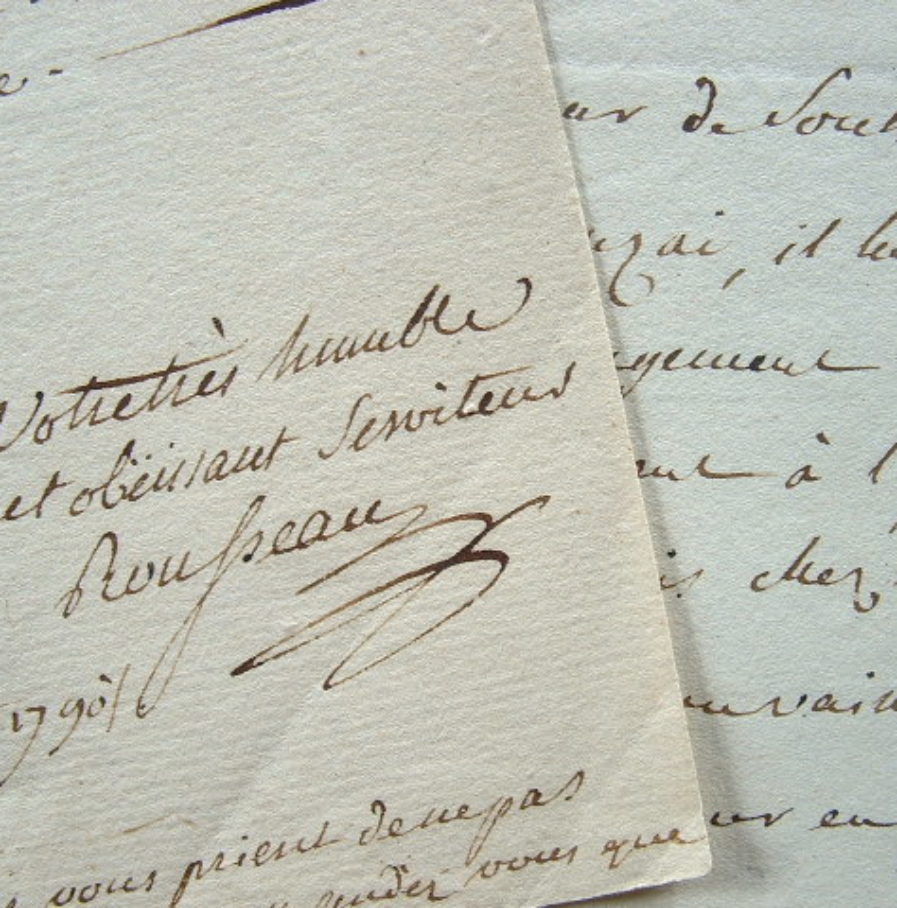 e.
Votre très humble
et obëissant Serviteur
Rousseau
1790
vous prient de ne pas
vous que
ur de Sou
zai, il
gement
ant à l
is chez
vain
ur en